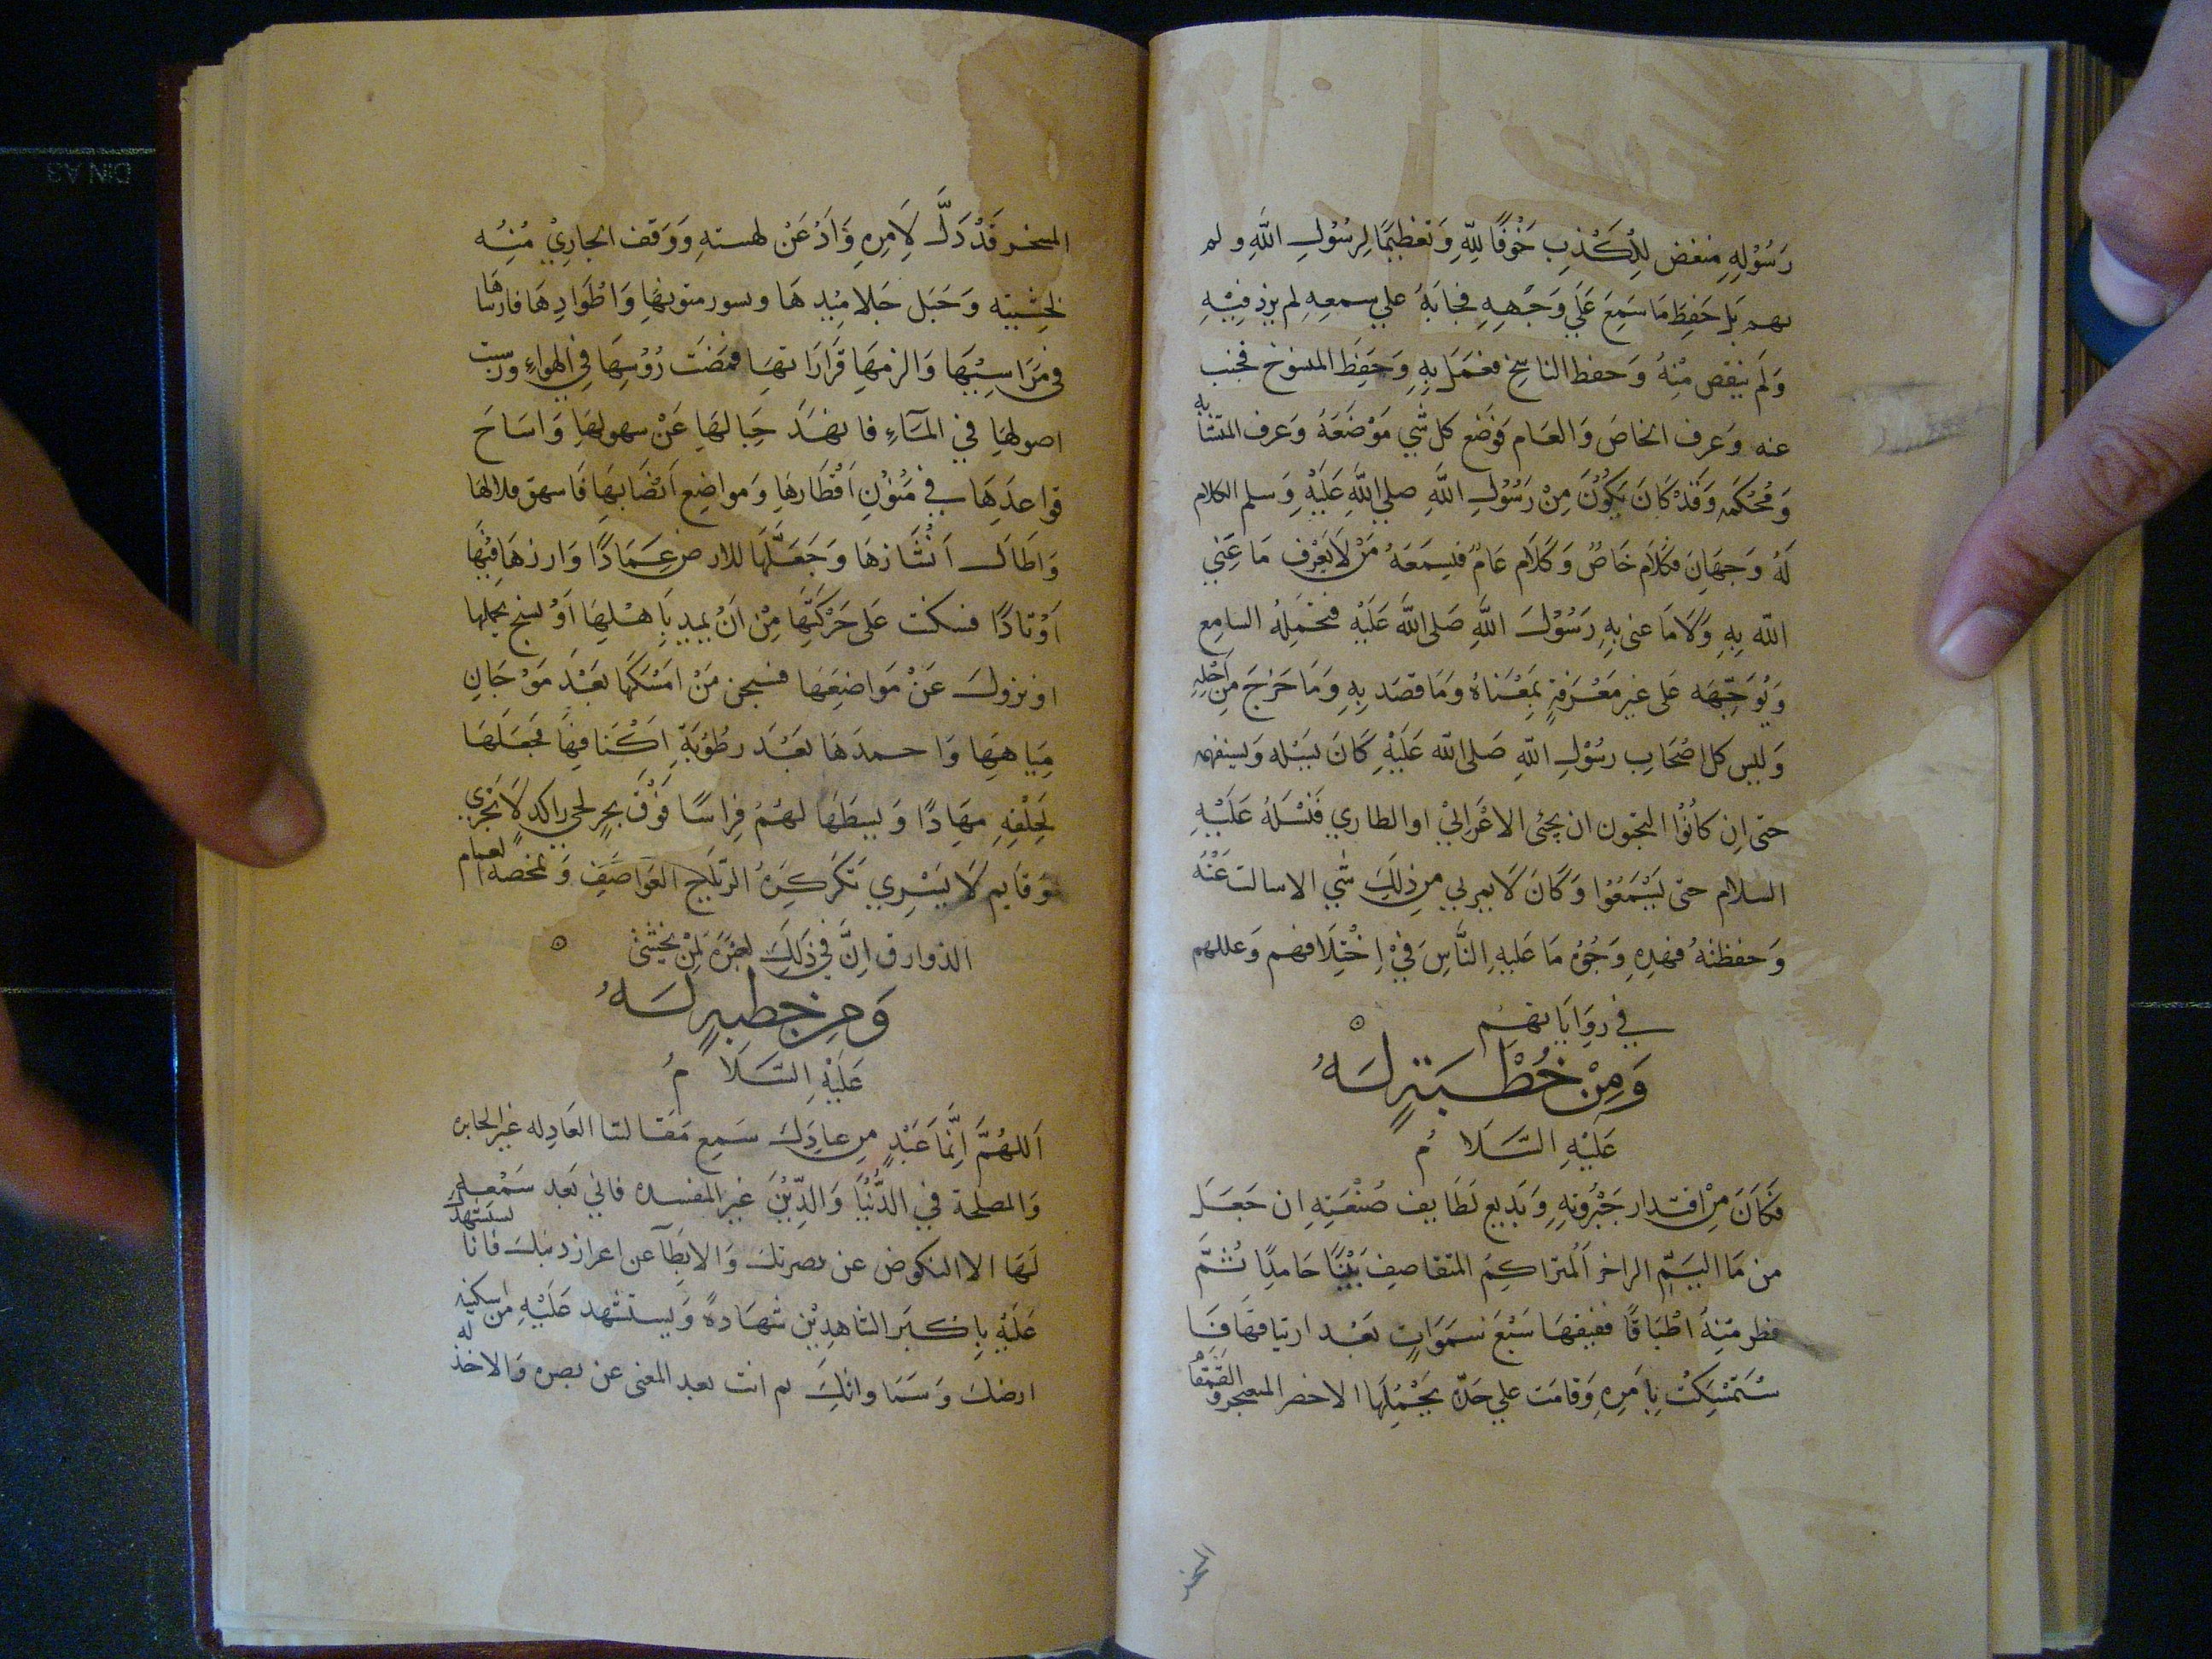 رَسُوْلِهِ مبغض لِلْكَذِبِ خَوْفًا لِلّهِ وَتعْظِيْمًا لِرسُوْلِ اللهِ و لم
يهم بَل حَفِظَ مَا سَمِعَ عَلَي وَجْهِهِ فجَابَهُ علي سمعِهِ لم يزد فِيْهِ
وَلَم ينقص مِنْهُ وَحفظ الناسِخ فعَمَل بِهِ وَحَفِظَ المنسوخ فجنب
عنه وَعرف الخاصَ وَالعَام فوَضَع كل شي مَوْضَعَهُ وَعرف المتشابه
وَمُحْكَمَه وَقَدْ كَانَ يَكُوْنُ مِنْ رَسُوْلِ اللهِ صلي اللهِ عَلَيْهِ وَسلم الكلام
لَهُ وَجهَانِ فكَلَام خَاصٌ وَكَلَام عَامٌ فيسمَعَهُ مَنْ لَا يَعْرِف مَا عَنِي
الله بِهِ وَلَا مَا عنى بِهِ رَسُوْلَ اللهِ صَلى اللهَ عَلَيْهِ فيحْمِلهُ السامِع
وَيُوَجِّهَه عَلى غير مَعْرَفةٍ بِمَعْنَاهُ وَمَا قصَد بِهِ وَمَا خَرَجَ مِن اَجْلِهِ
وَليس كل اصْحَابِ رسُوْلِ اللهِ صَلى الله عَلَيْهِ كَانَ يسَله وَيستفهمه
حتى اِن كَانُوْا ليحبون ان يجئ الاعْرَابيْ او الطاري فَيسْلَهُ عَلَيْهِ
السلام حتى يَسْمَعُوْا وَكَانَ لَا يمر بي مِن ذلِكَ شي الا سالت عَنْهُ
وَحفظتهُ فهذِهِ وَجُوْهُ مَا عَليهِ النَّاسِ في اِخْتِلَافهم وَعللهم
في رِوَايَاتهِم
وَمِنْ خُطْبَةٍ لَهُ
عَلَيْهِ السَّلَامُ
فكَانَ مِنْ اقتدار جَبْرُوتِهِ وَبَدِيع لَطَايف صُنْعَتِهِ ان جَعَلَ
من مَا اليَمّ الزاخر اَلمتراكِمُ المتقاصِف يَبْسًا جَامدًا ثُمَّ
فطر مِنهِ اَطْبَاقًا ففتقهَا سَبْعَ سمَوَاتٍ بَعْد ارتتاقهَا فَا
سْتَمْسَكْت بِامَرِهِ وَقامَت علي حَدّه يَحْمِلهَا الاخضر المثعجر وَالقَمْقَام
المسخر
المسخر قَدْ ذَلَّ لَاِمرِهِ وَاَذْعَنَ لهيبته وَوَقف الجَارِيْ مُنهُ
لِخشيته وَجَبَل جَلامِيْدهَا وَنشوز متونهَا وَاَطْوَادِهَا فارسَاهَا
في مَرَاسِيْهَا وَالزمهَا قَرَارَاتهَا فمَضَت رُوسِهَا فِي الهواءِ ورست
اصولهَا في المآءِ فانهَدَ جِبالهَا عَنْ سهولهَا وَاسَاخَ
قواعدَهَا في مُتُوْنِ اَقْطَارهَا وَمواضِع اَنْصَابهَا فاسهق قلالهَا
وَاطَالَ اَنْشَازهَا وَجَعَلَهَا للارض عِمَادًا وَارزهَا فِيْهَا
اَوْتَادًا فسَكنت عَلى حَرْكَتِهَا مِنْ اَنْ تميد بَاهْلِهَا اَوْ تسيخ بحملها
او تزولَ عَنْ مَوَاضِعَهَا فسبحن مَنْ امَسَكَهَا بَعْدَ مَوْجَانِ
مِيَاههَا وَاجمدَهَا بَعْدَ رطُوْبَةِ اَكْنَافهَا فجَعَلَهَا
لِخَلْقِهِ مِهَادًا وَبَسَطَهَا لهُمْ فِراسًا فَوْقَ بحرٍ لجيٍ راكدٍ لَا يَجْرِي
وَقايم لَا يَسْرِي تكرْكِرهُ الرّيَاح العَوَاصَف وَتمخضه الغمام
الذوارق اِنَّ في ذَلِكَ لَعِبْرَة لِمَنْ يَخْشَى
وَمِن خطبةٍ لَهُ
عَلَيْهِ السَّلَامُ
اَللهُمَّ اَيَّمَا عَبْدٍ مِن عبادِكَ سَمِع مَقالتنا العَادِله غير الجايره
وَالمصلحة في الدُّنيَا وَالدِّيْنَ غير المفسده فابي بَعد سَمْعه
لَهَا الا النكوص عن نصرتكَ وَالابطآ عن اعزاز دينكَ فانا نستشهدك
عَلَيْهِ بِاكبَر الشاهِدِيْن شهَادةً وَنستشهد عَلَيْهِ من اسكنته
ارضكَ وَسَمَاواتكَ ثم انت بعد المغني عن نصره وَالاخذ له